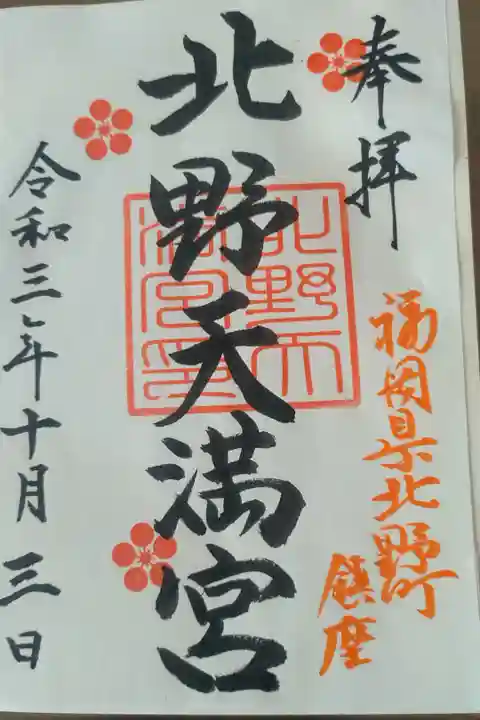 奉拝
福岡県北野町
鎮座
北野天満宮
北野天
満宮印
令和三年十月三日